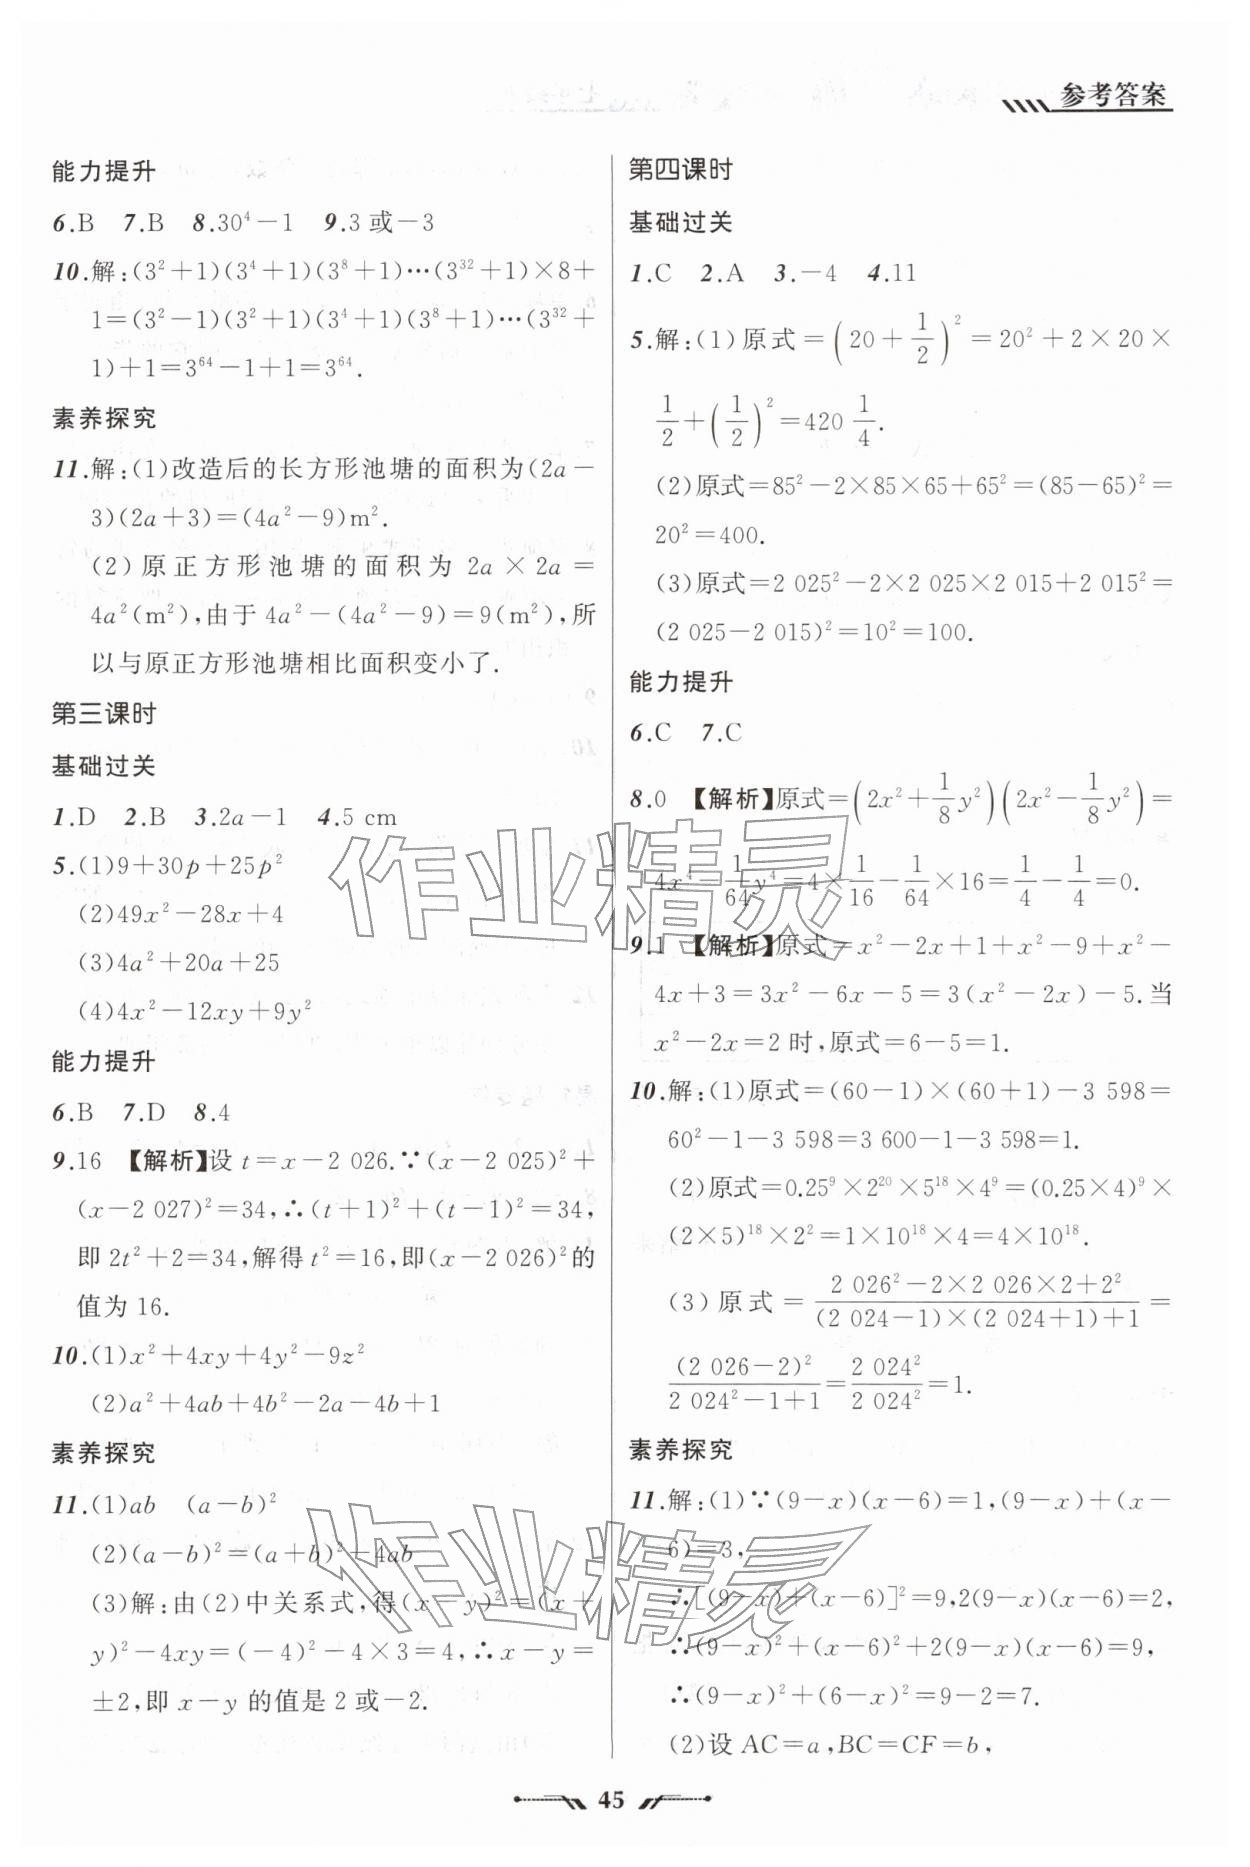 参考答案
能力提升
6.B 7.B 8.30⁴-1 9.3或-3
10.解:(3²+1)(3⁴+1)(3⁸+1)…(3³²+1)×8+
1=(3²-1)(3²+1)(3⁴+1)(3⁸+1)…(3³²+
1)+1=3⁶⁴-1+1=3⁶⁴.
素养探究
11.解:(1)改造后的长方形池塘的面积为(2a-
3)(2a+3)=(4a²-9)m².
(2)原正方形池塘的面积为 2a×2a=
4a²(m²),由于4a²-(4a²-9)=9(m²),所
以与原正方形池塘相比面积变小了.
第三课时
基础过关
1.D 2.B 3.2a-1 4.5 cm
5.(1)9+30p+25p²
(2)49x²-28x+4
(3)4a²+20a+25
(4)4x²-12xy+9y²
能力提升
6.B 7.D 8.4
9.16 【解析】设t=x-2 026.∵(x-2 025)²+
(x-2 027)²=34,∴(t+1)²+(t-1)²=34,
即2t²+2=34,解得t²=16,即(x-2 026)²的
值为16.
10.(1)x²+4xy+4y²-9z²
(2)a²+4ab+4b²-2a-4b+1
素养探究
11.(1)ab (a-b)²
(2)(a-b)²=(a+b)²-4ab
(3)解:由(2)中关系式,得(x-y)²=(x+
y)²-4xy=(-4)²-4×3=4,∴x-y=
±2,即x-y的值是2或-2.
第四课时
基础过关
1.C 2.A 3.-4 4.11
5.解:(1)原式=(20+1/2)²=20²+2×20×
1/2+(1/2)²=420 1/4.
(2)原式=85²-2×85×65+65²=(85-65)²=
20²=400.
(3)原式=2 025²-2×2 025×2 015+2 015²=
(2 025-2 015)²=10²=100.
能力提升
6.C 7.C
8.0 【解析】原式=(2x²+1/8y²)(2x²-1/8y²)=
4x⁴-1/64y⁴=4×1/16-1/64×16=1/4-1/4=0.
9.1 【解析】原式=x²-2x+1+x²-9+x²-
4x+3=3x²-6x-5=3(x²-2x)-5.当
x²-2x=2时,原式=6-5=1.
10.解:(1)原式=(60-1)×(60+1)-3 598=
60²-1-3 598=3 600-1-3 598=1.
(2)原式=0.25⁹×2²⁰×5¹⁸×4⁹=(0.25×4)⁹×
(2×5)¹⁸×2²=1×10¹⁸×4=4×10¹⁸.
(3)原式=(2 026²-2×2 026×2+2²)/((2 024-1)×(2 024+1)+1)=
(2 026-2)²/(2 024²-1+1)=2 024²/2 024²=1.
素养探究
11.解:(1)∵(9-x)(x-6)=1,(9-x)+(x-
6)=3,
∴[(9-x)+(x-6)]²=9,2(9-x)(x-6)=2,
∴(9-x)²+(x-6)²+2(9-x)(x-6)=9,
∴(9-x)²+(6-x)²=9-2=7.
(2)设AC=a,BC=CF=b,
45
作业精灵
作业精灵